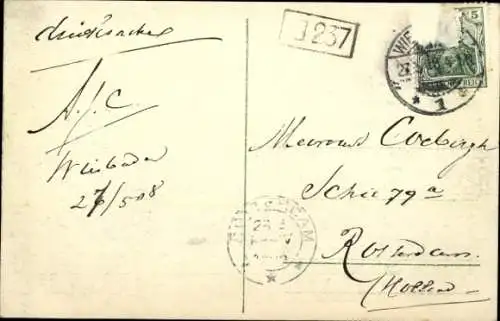 Drucksache
J 237
5
WIE
27
* 1 *
A.J.C.
Wiesbaden
27/5 08
Mevrouw
Schie 79a
Rotterdam.
(Holland)
ROTTERDAM